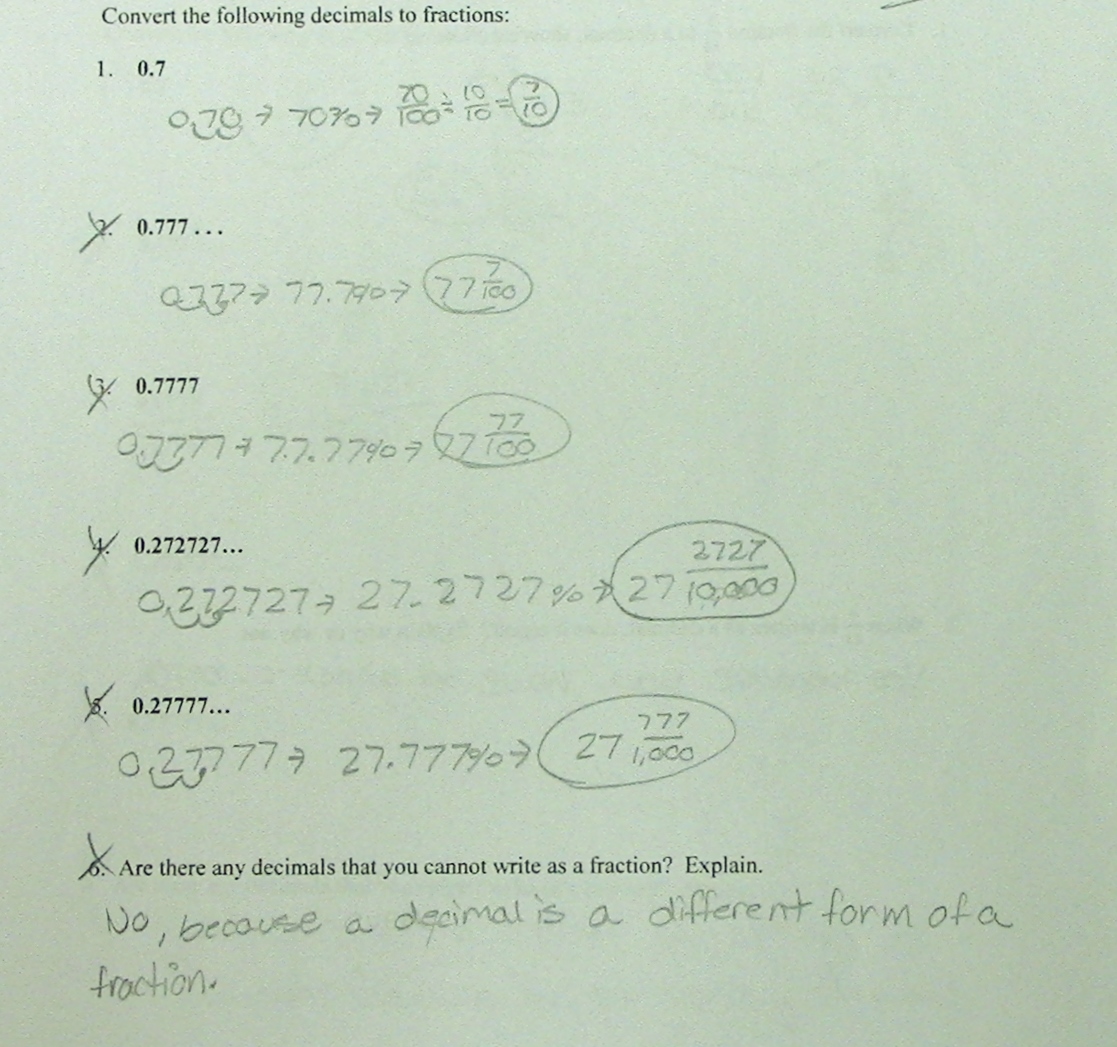 Convert the following decimals to fractions:
1. 0.7
0.70 → 70% → 70/100 ÷ 10/10 = 7/10
2. 0.777 . . .
0.777 → 77.7% → 77 7/100
3. 0.7777
0.7777 → 77.77% → 77 77/100
4. 0.272727...
0.272727 → 27.2727% → 27 2727/10,000
5. 0.27777...
0.27777 → 27.777% → 27 777/1,000
6. Are there any decimals that you cannot write as a fraction? Explain.
No, because a decimal is a different form of a
fraction.